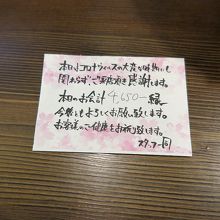 本日はコロナウィルスの大変な時期にも
関わらずご来店頂き感謝致します。
本日のお会計4,650-縁
今後ともよろしくお願い致します。
お客様のご健康をお祈り致します。
スタッフ一同